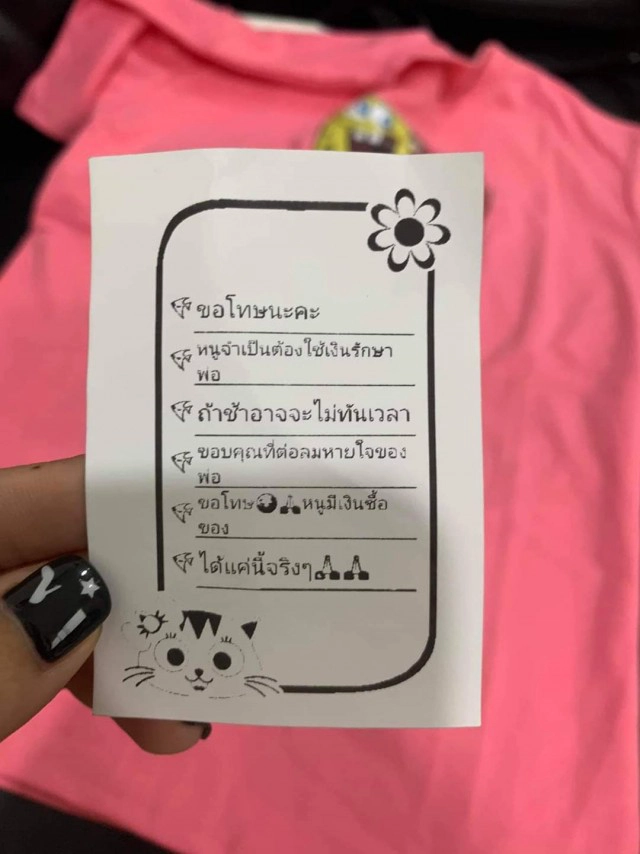 ขอโทษนะคะ
หนูจำเป็นต้องใช้เงินรักษา
พ่อ
ถ้าช้าอาจจะไม่ทันเวลา
ขอบคุณที่ต่อลมหายใจของ
พ่อ
ขอโทษ🥺🙏หนูมีเงินซื้อ
ของ
ได้แค่นี้จริงๆ🙏🙏